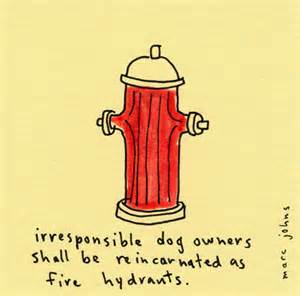 irresponsible dog owners
shall be reincarnated as
fire hydrants.
marc johns